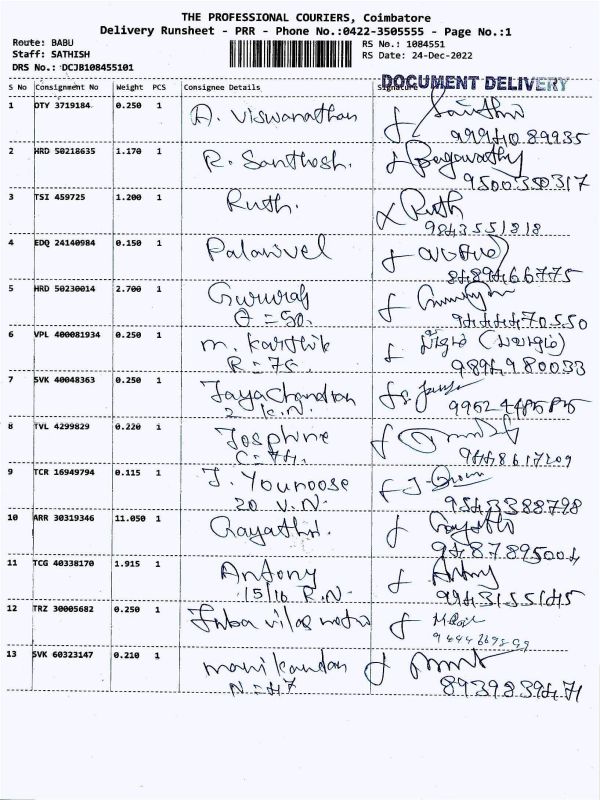 THE PROFESSIONAL COURIERS, Coimbatore
Delivery Runsheet - PRR - Phone No.:0422-3505555 - Page No.:1
Route: BABU
Staff: SATHISH
DRS No.: DCJB108455101
RS No.: 1084551
RS Date: 24-Dec-2022
S No Consignment No Weight PCS Consignee Details Signature
DOCUMENT DELIVERY
1 DTY 3719184 0.250 1 A. Viswanathan
2 HRD 50218635 1.170 1 R. Santhosh. Bagavathy
9500350317
3 TSI 459725 1.200 1 Ruth. Ruth
9843551818
4 EDQ 24140984 0.150 1 Palanivel
8489466775
5 HRD 50230014 2.700 1 Gururaj
= 50. 9444470550
6 VPL 400081934 0.250 1 M. Karthik
R = 78. 9894980033
7 SVK 40048363 0.250 1 Jaya Chandran
2 K.N.
8 TVL 4299829 0.220 1 Josphine
C = 74. 9448617209
9 TCR 16949794 0.115 1 J. Younoose
20 V.N. 9543388798
10 ARR 30319346 11.050 1 Gayathri. Gayathri
9487895004
11 TCG 40338170 1.915 1 Antony Antony
15/16 R.N. 9943155145
12 TRZ 30005682 0.250 1 Inba vilas
13 SVK 60323147 0.210 1 manikandan
N = 47 8939839471